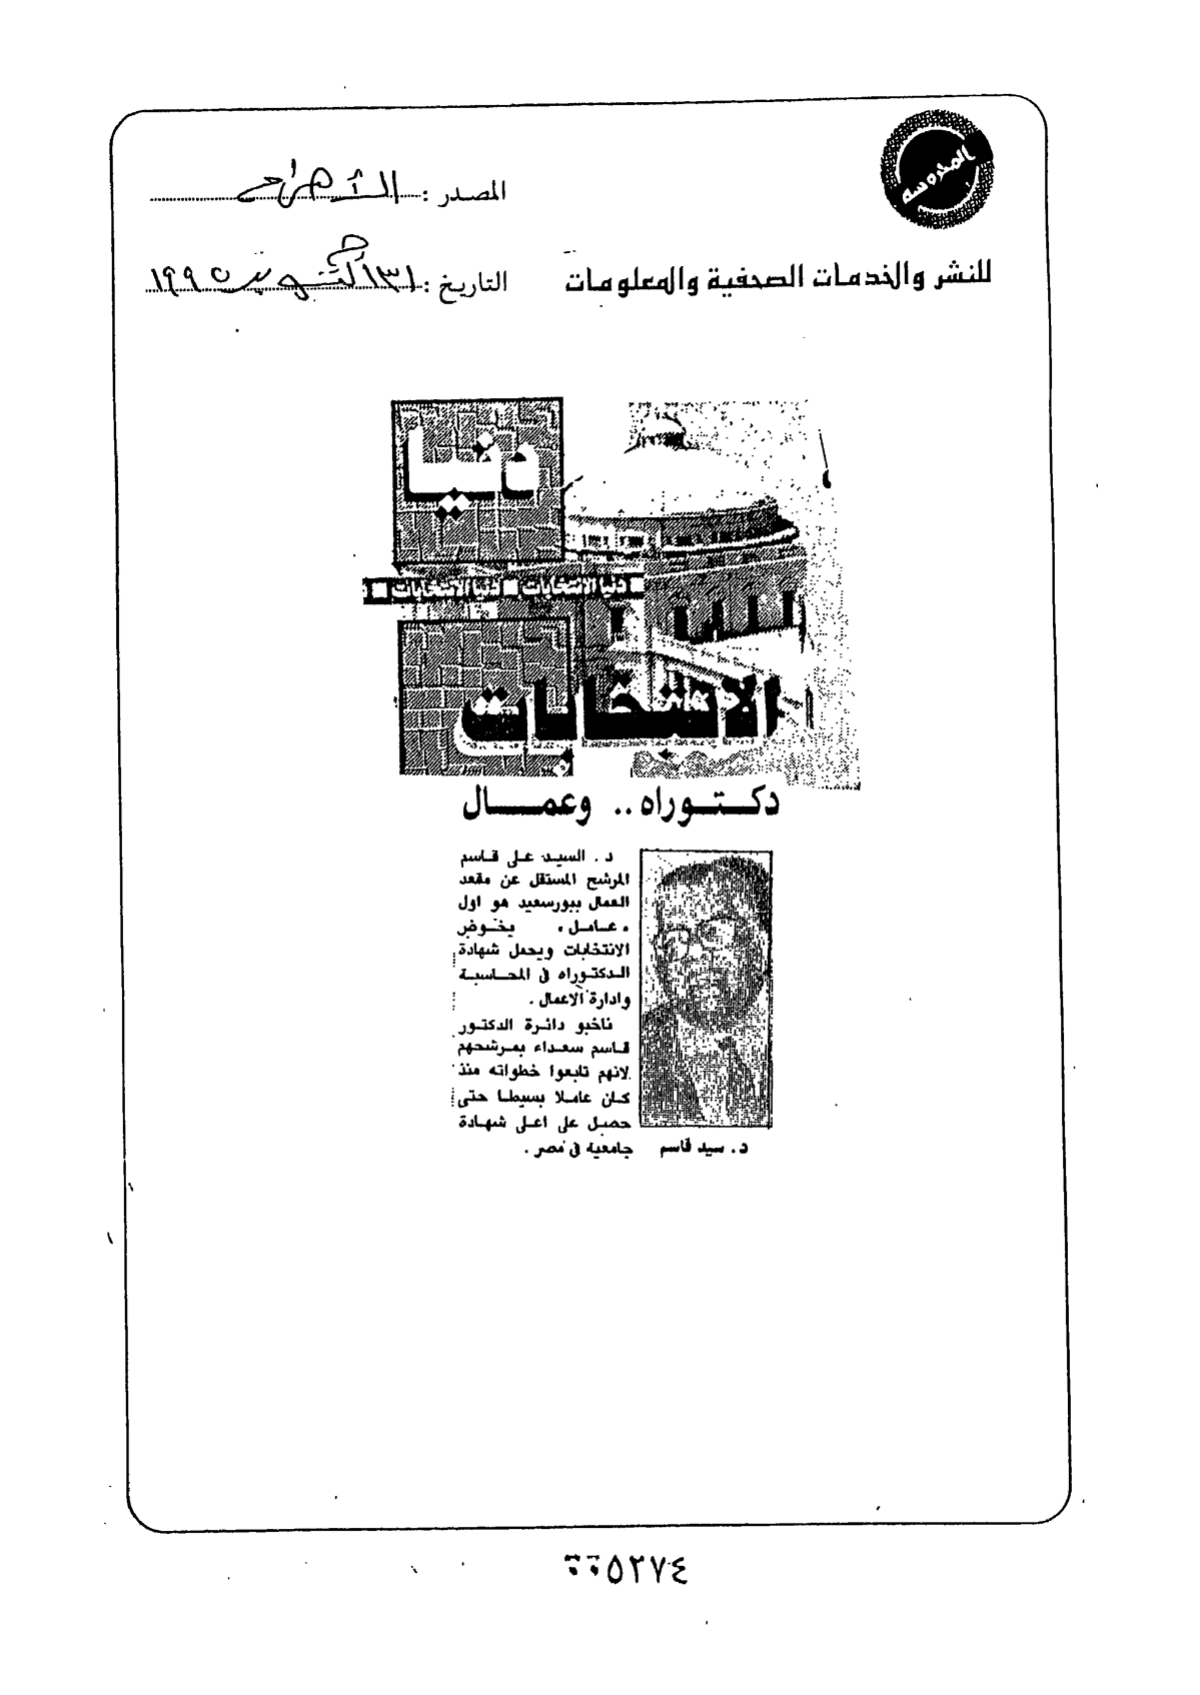 المحروسة
للنشر والخدمات الصحفية والمعلومات
المصدر : الأهرام
التاريخ : ٣١ أكتوبر ١٩٩٥
دنيا
دنيا الانتخابات ■ دنيا الانتخابات ■
الانتخابات
دكتوراه .. وعمال
د . السيد على قاسم
المرشح المستقل عن مقعد
العمال ببورسعيد هو اول
« عامل » يخوض
الانتخابات ويحمل شهادة
الدكتوراه فى المحاسبة
وادارة الاعمال .
ناخبو دائرة الدكتور
قاسم سعداء بمرشحهم
لانهم تابعوا خطواته منذ
كان عاملا بسيطا حتى
حصل على اعلى شهادة
جامعية فى مصر .
د . سيد قاسم
٥٢٧٤